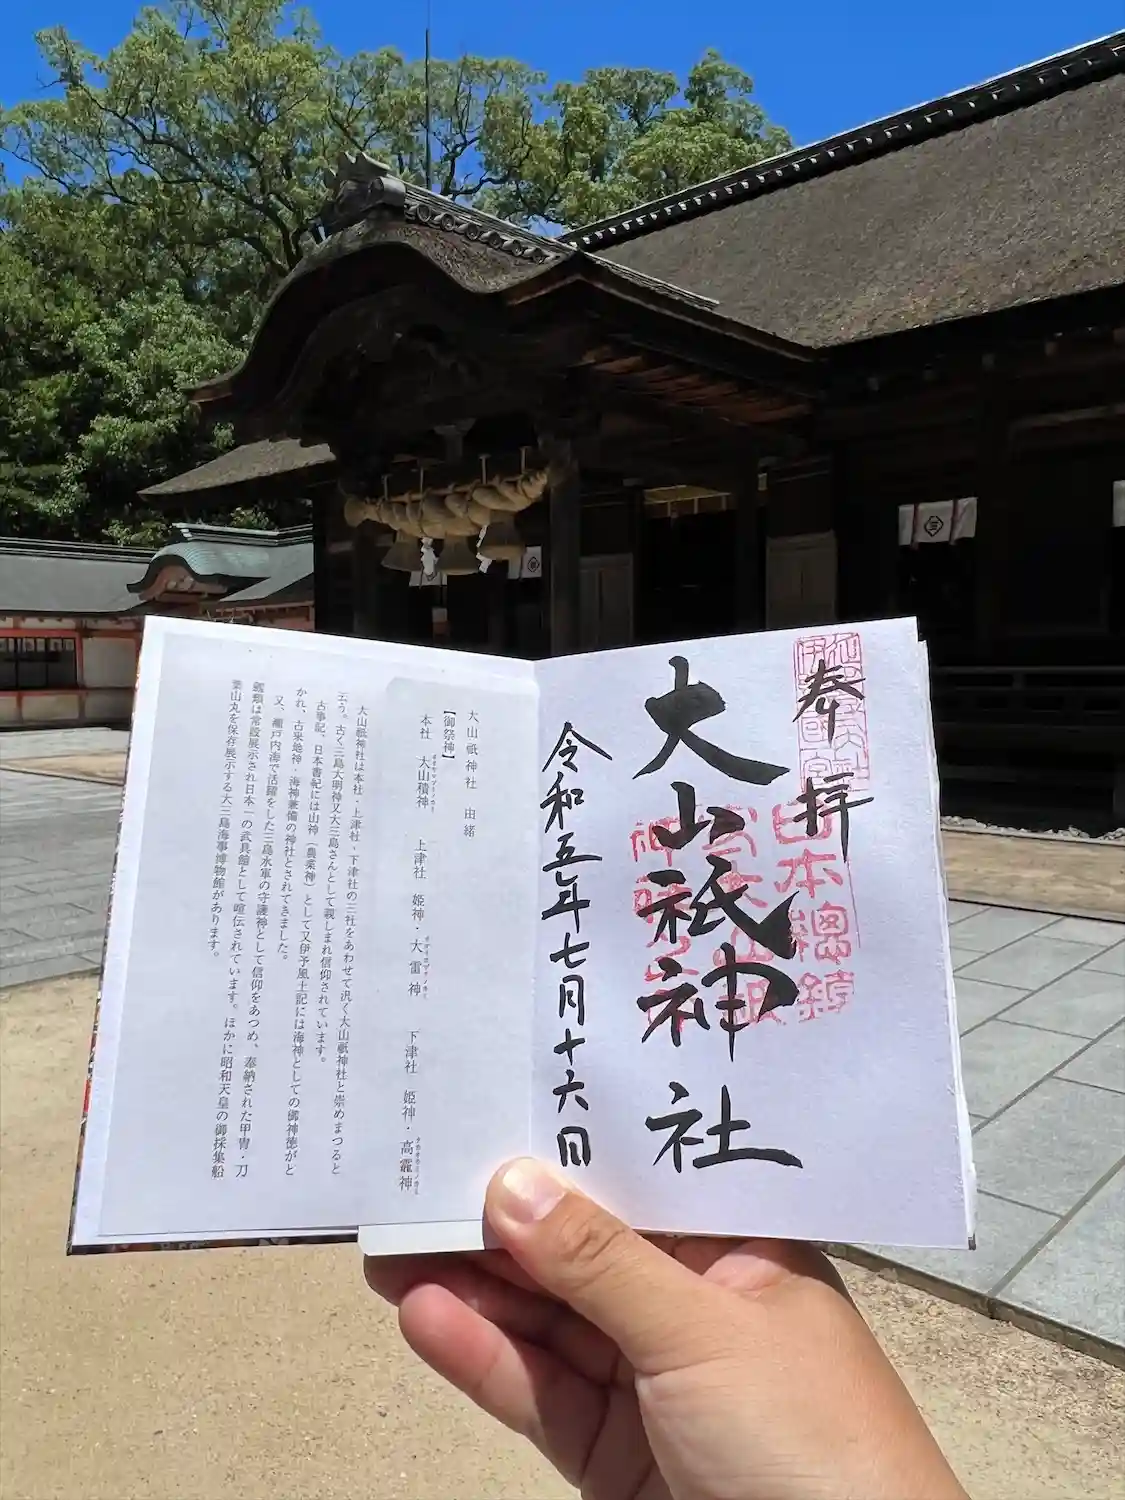 奉拝
大山祇神社
令和五年七月十六日
日本總鎮
伊豫國一宮
大山祇神社　由緒
【御祭神】
本社　大山積神　上津社　姫神・大雷神　下津社　姫神・高龗神
大山祇神社は本社・上津社・下津社の三社をあわせて汎く大山祇神社と崇めまつると
云う。古く三島大明神又大三島さんとして親しまれ信仰されています。
古事記、日本書紀には山神（農業神）として又伊予風土記には海神としての御神徳がと
かれ、古来地神・海神兼備の神社とされてきました。
又、瀬戸内海で活躍をした三島水軍の守護神として信仰をあつめ、奉納された甲冑・刀
鎧類は常設展示され日本一の武具館として喧伝されています。ほかに昭和天皇の御採集船
葉山丸を保存展示する大三島海事博物館があります。